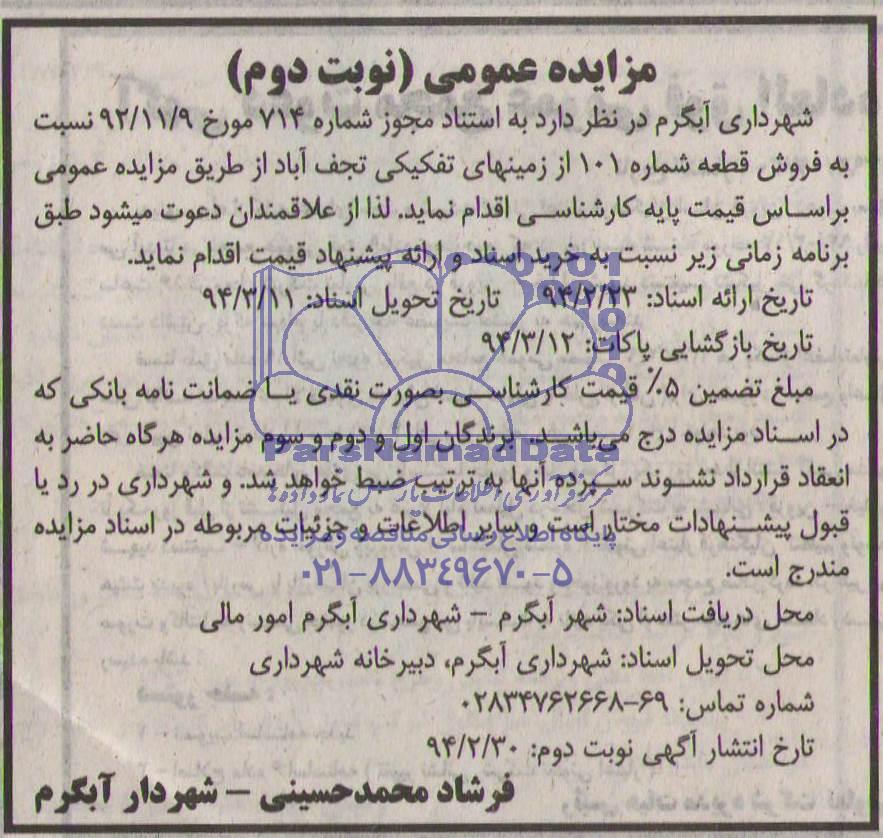 مزایده عمومی (نوبت دوم)
شهرداری آبگرم در نظر دارد به استناد مجوز شماره ۷۱۴ مورخ ۹۲/۱۱/۹ نسبت
به فروش قطعه شماره ۱۰۱ از زمینهای تفکیکی تجف آباد از طریق مزایده عمومی
براساس قیمت پایه کارشناسی اقدام نماید. لذا از علاقمندان دعوت میشود طبق
برنامه زمانی زیر نسبت به خرید اسناد و ارائه پیشنهاد قیمت اقدام نماید.
تاریخ ارائه اسناد: ۹۴/۲/۲۳ تاریخ تحویل اسناد: ۹۴/۳/۱۱
تاریخ بازگشایی پاکات: ۹۴/۳/۱۲
مبلغ تضمین ۵٪ قیمت کارشناسی بصورت نقدی یا ضمانت نامه بانکی که
در اسناد مزایده درج می‌باشد. برندگان اول و دوم و سوم مزایده هرگاه حاضر به
ParsNamadData
انعقاد قرارداد نشوند سپرده آنها به ترتیب ضبط خواهد شد. و شهرداری در رد یا
مرکز فرآوری اطلاعات پارس نماد داده‌ها
قبول پیشنهادات مختار است و سایر اطلاعات و جزئیات مربوطه در اسناد مزایده
پایگاه اطلاع رسانی مناقصه و مزایده
مندرج است.
۰۲۱-۸۸۳۴۹۶۷۰-۵
محل دریافت اسناد: شهر آبگرم – شهرداری آبگرم امور مالی
محل تحویل اسناد: شهرداری آبگرم، دبیرخانه شهرداری
شماره تماس: ۶۹-۰۲۸۳۴۷۶۲۶۶۸
تارخ انتشار آگهی نوبت دوم: ۹۴/۲/۳۰
فرشاد محمدحسینی – شهردار آبگرم